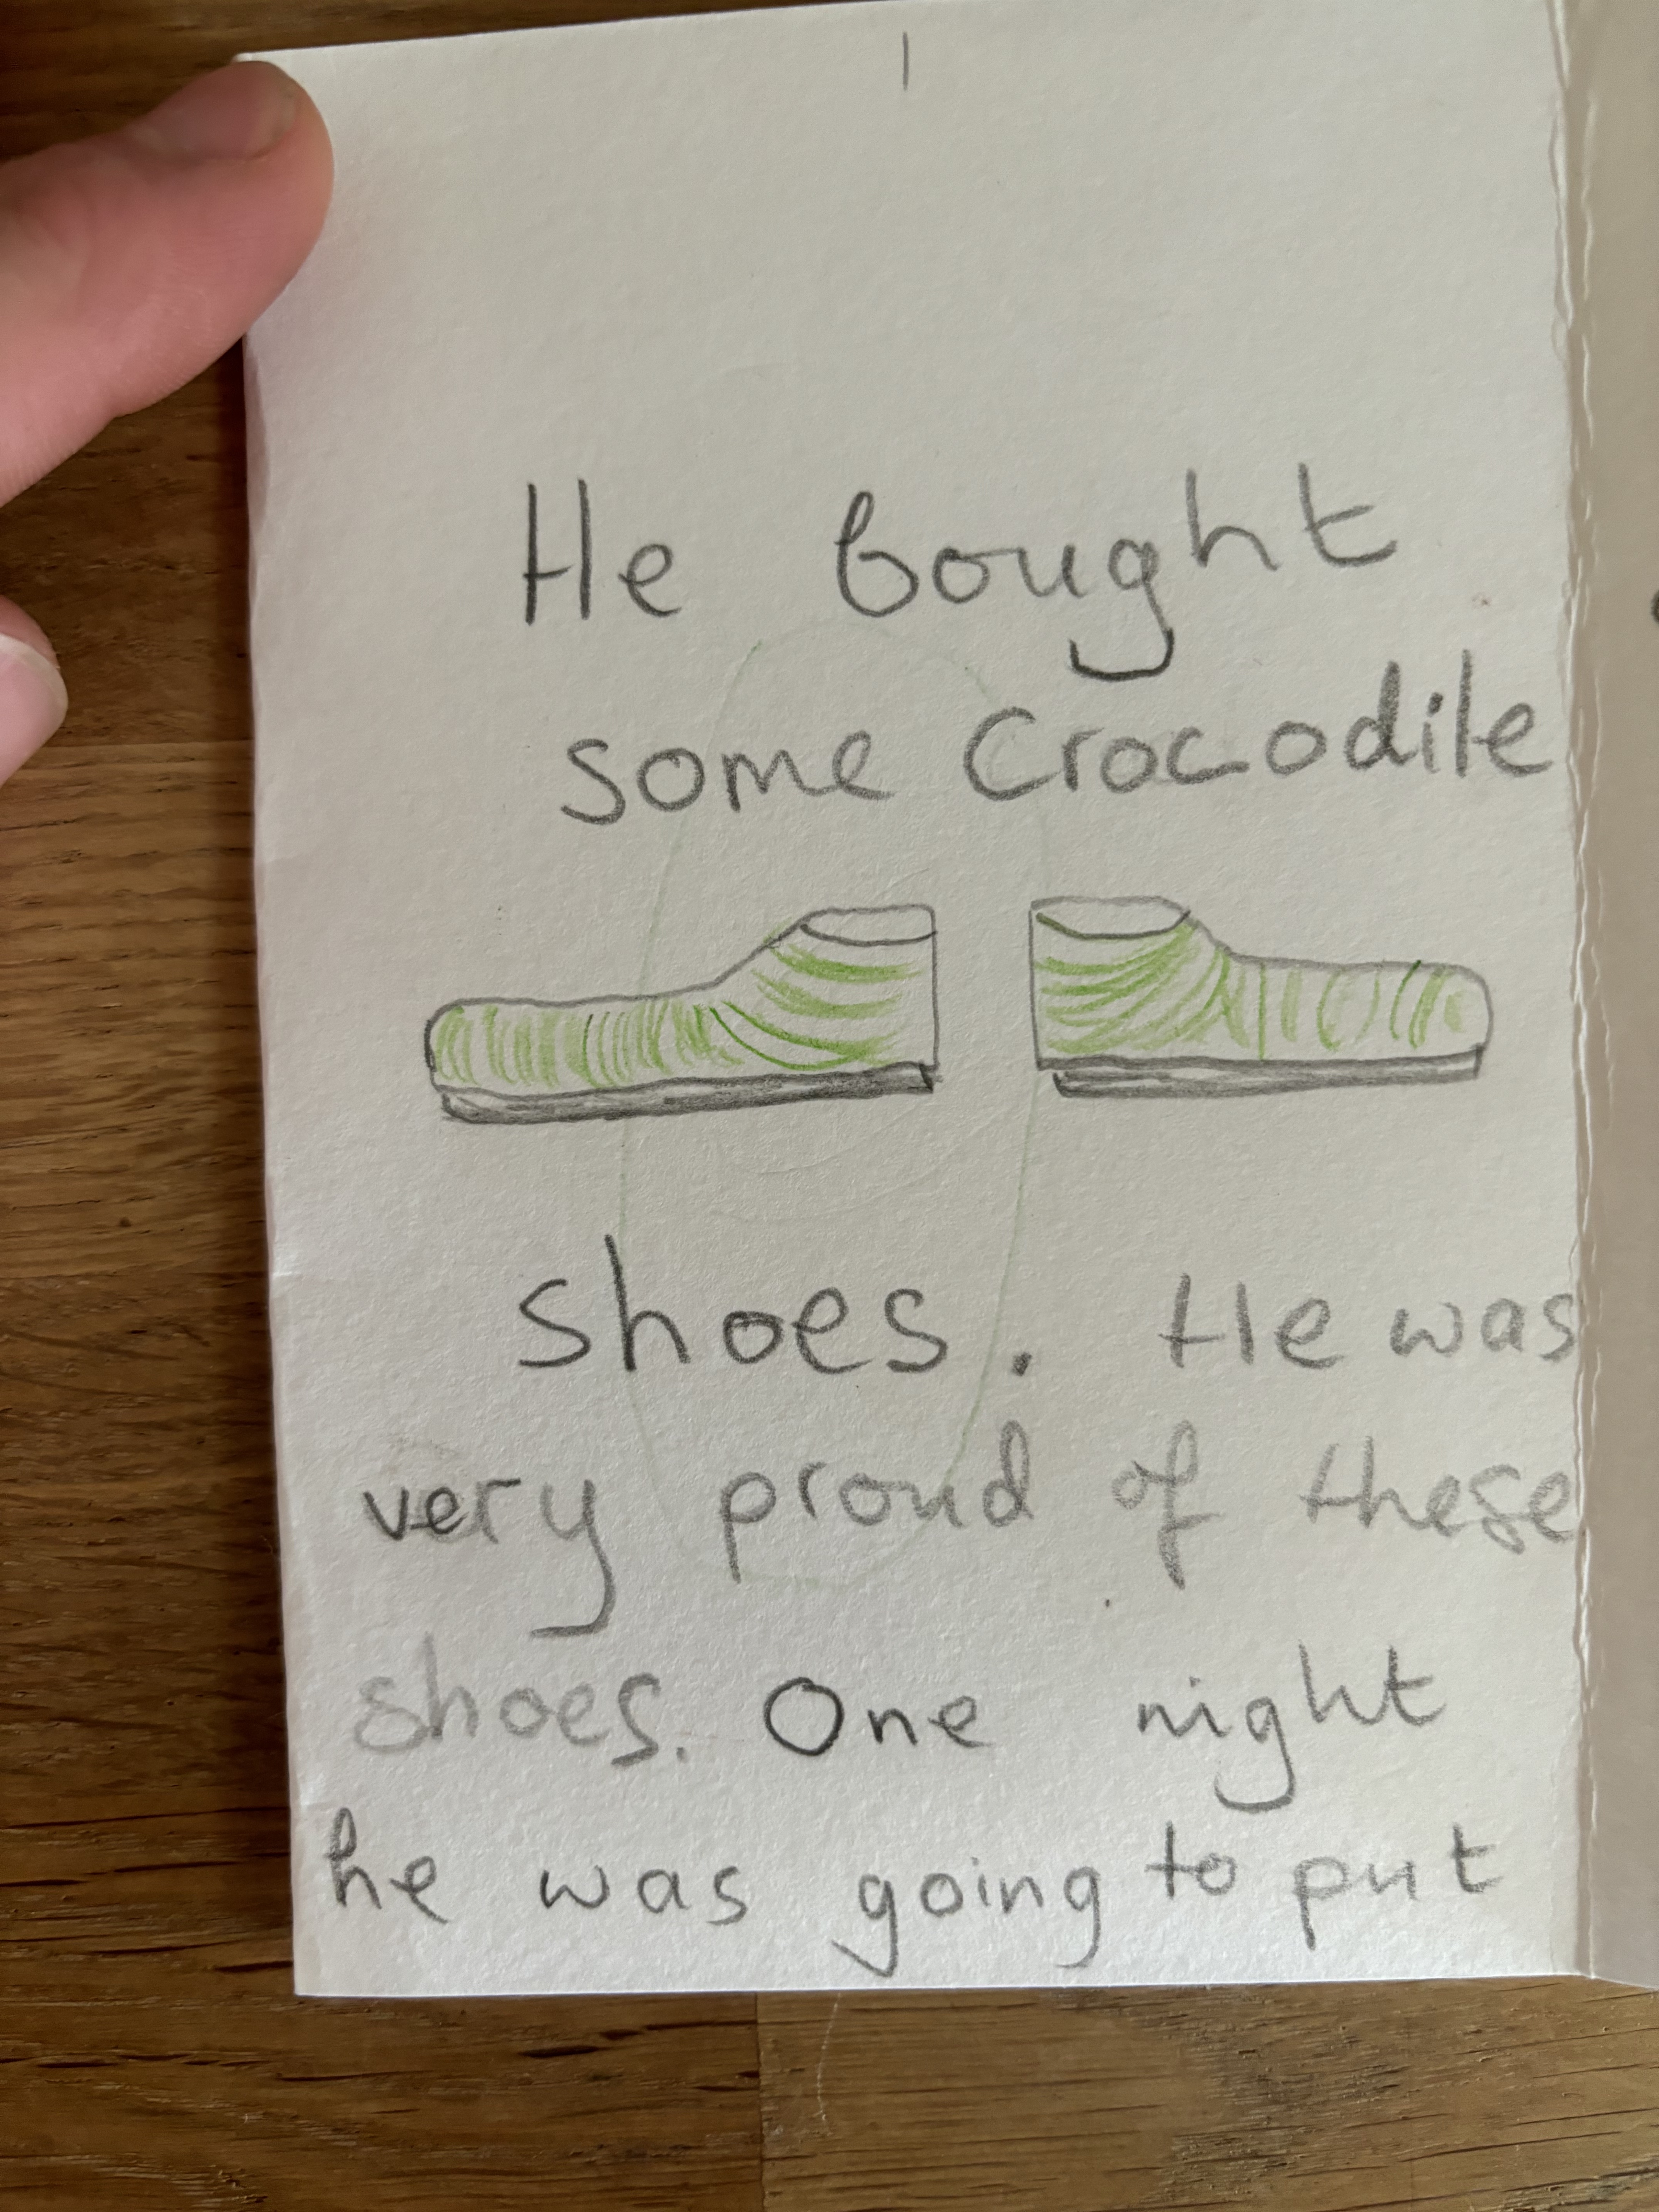 He bought
some Crocodile
shoes. He was
very proud of these
shoes. One night
he was going to put